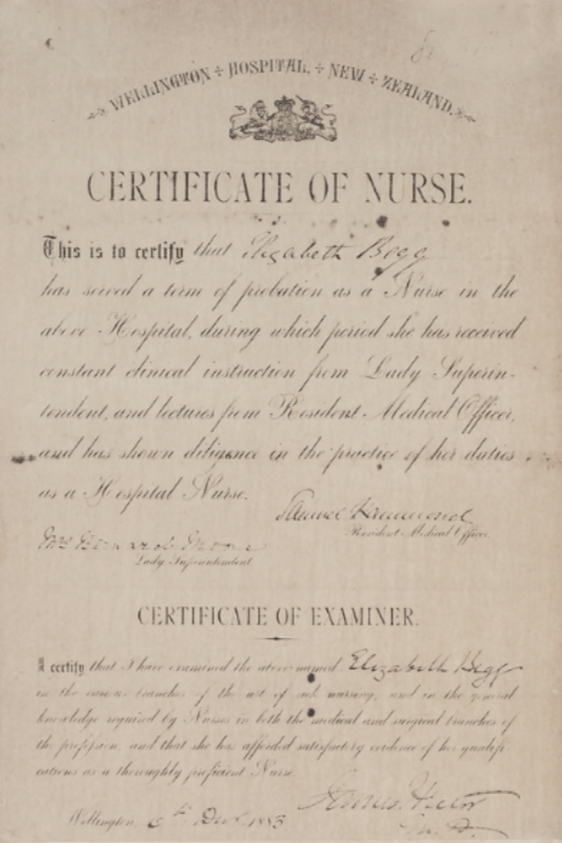 WELLINGTON ÷ HOSPITAL, ÷ NEW ÷ ZEALAND.
CERTIFICATE OF NURSE.
This is to certify that Elizabeth
has served a term of probation as a Nurse in the
above Hospital, during which period she has received
constant clinical instruction from Lady Superin-
tendent, and lectures from Resident Medical Officer,
and has shown diligence in the practice of her duties
as a Hospital Nurse.
Hammond
Resident Medical Officer.
Lady Superintendent
CERTIFICATE OF EXAMINER.
I certify that I have examined the above named Elizabeth
in the various branches of the art of sick nursing, and in the general
knowledge required by Nurses in both the medical and surgical branches of
the profession, and that she has afforded satisfactory evidence of her qualifi-
cations as a thoroughly proficient Nurse.
James Hector
Wellington, 6th